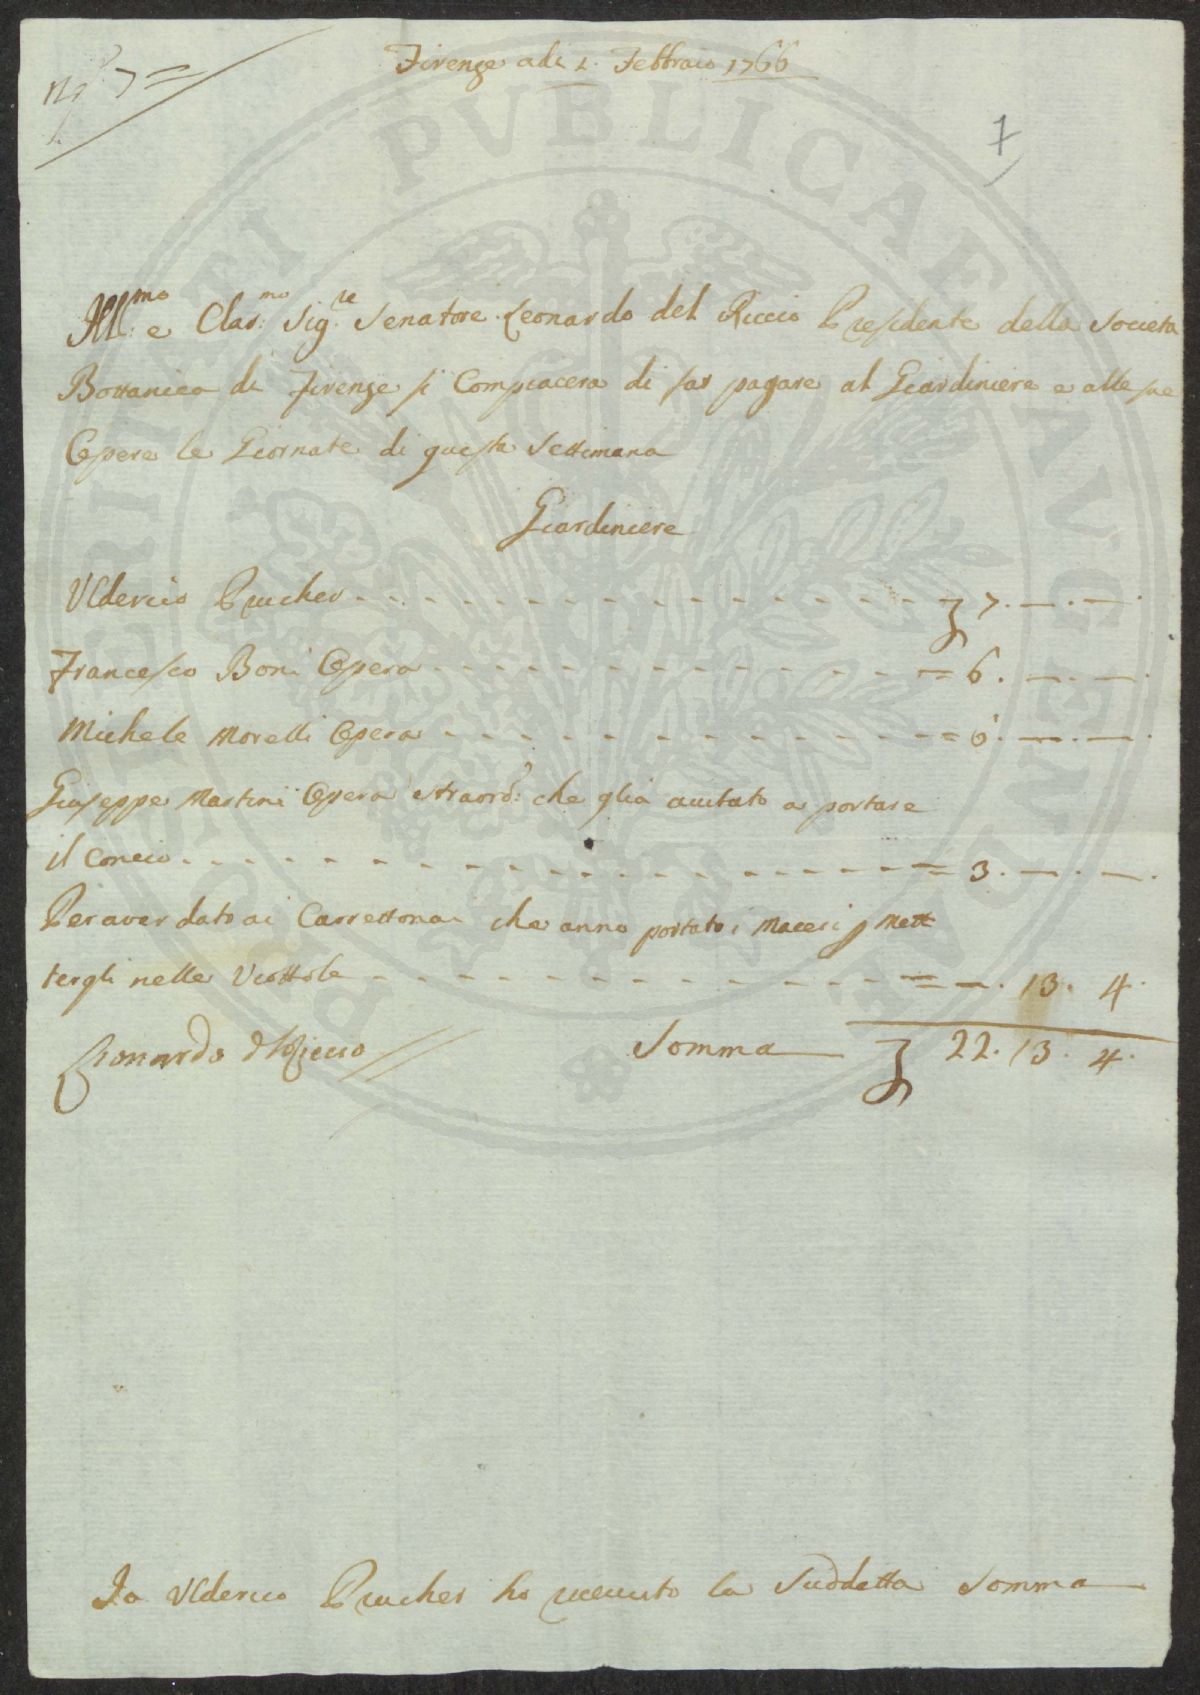 N.º 7 =
Firenze adi 1. Febbraio 1766
7
Ill:mo e Clar:mo Sig:re Senatore Leonardo del Riccio Presidente della Societa
Bottanica di Firenze si Compiacera di far pagare al Giardiniere e alle sue
Opere le Giornate di questa Settimana
Giardiniere
Ulderico Prucher - - - - 7. —. —.
Francesco Boni Opera - - - - = 6. —. —.
Michele Morelli Opera - - - - = 6. —. —.
Giuseppe Martini Opera straord: che glia auitato a portare
il Concio - - - - = 3. —. —.
Per aver dato ai Carrettonai che anno portato i Maceri p Mett
tergli nelle Viottole - - - - = —. 13. 4.
Leonardo d Riccio Somma 22. 13. 4.
Io Ulderico Prucher ho riceuuto la Suddetta Somma
PRO BENE MERITAE PUBLICAE AUGENDAE